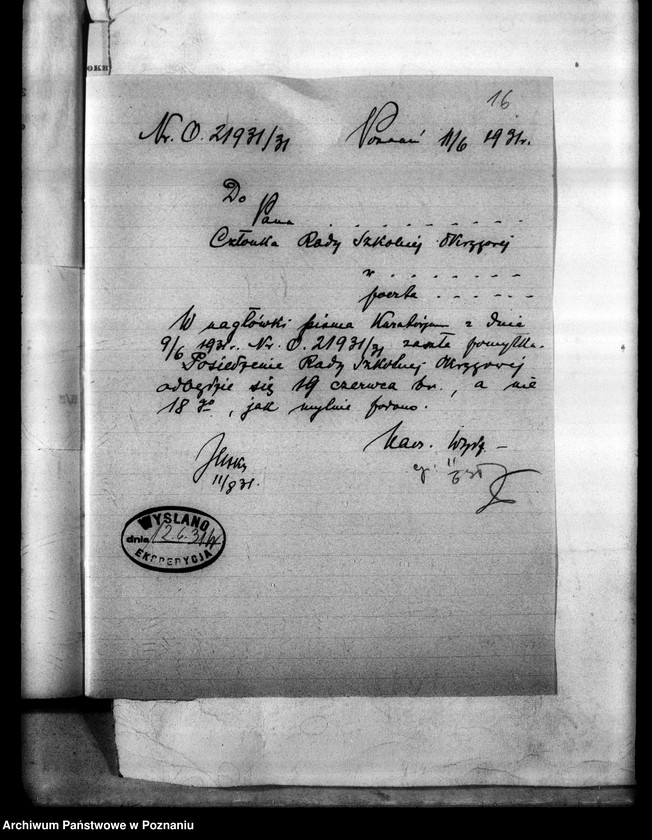 OKR
16
Nr. O. 21931/31 Poznań 11/6 1931r.
Do
Pana . . . . . . . . . . .
Członka Rady Szkolnej Okręgowej
w . . . . . . .
poczta . . . . . .
W nagłówku pisma Kuratorjum z dnia
9/6 1931r. Nr. O. 21931/31 zaszła pomyłka.
Posiedzenie Rady Szkolnej Okręgowej
odbędzie się 19 czerwca br., a nie
18 go, jak mylnie podano.
Nacz. Wydz.
WYSŁANO
dnia 12.6.31
EKSPEDYCJA
Archiwum Państwowe w Poznaniu